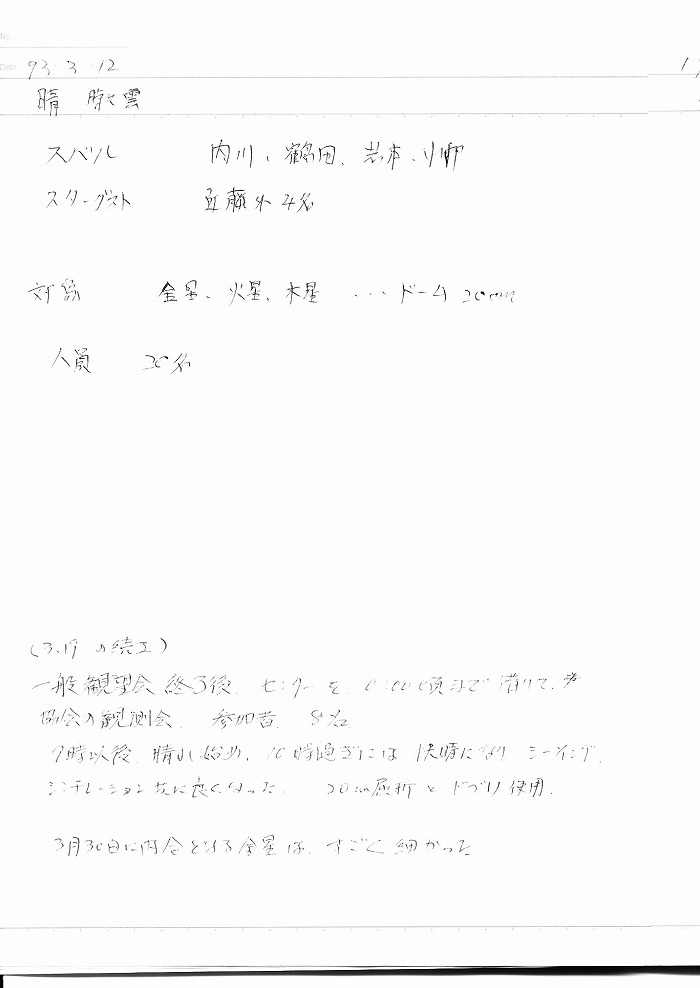 No.
Date 93・3・12
晴 時々雲
スバル 内川、鶴田、岩本、小柳
スターダスト 近藤外4名
対象 金星、火星、木星 ・・・ドーム 20cm
人員 20名
(3.19 の続き)
一般観望会終了後、センターを、0:00頃まで借りて、
協会の観測会、参加者、8名
9時以後、晴れ始め、10時過ぎには快晴になり シーイング、
シンチレーション共に良くなった。 20cm屈折とドブソ使用。
3月30日に内合となる金星は、すごく細かった